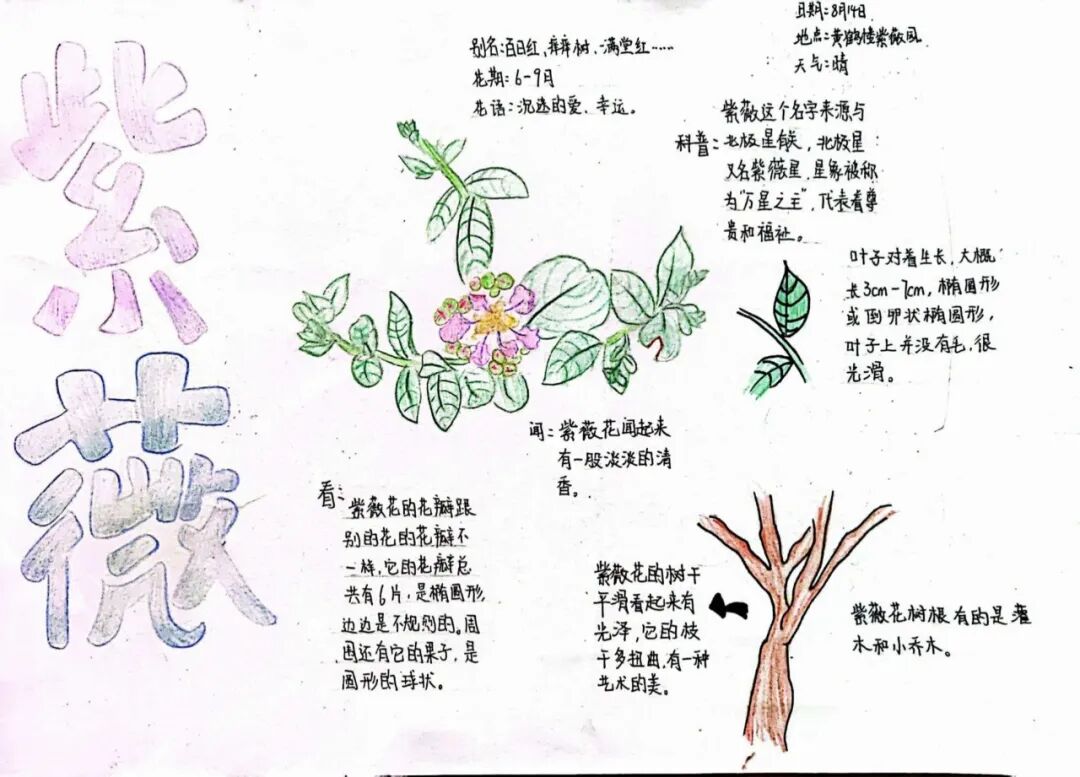 紫
薇
日期:8月14日
地点:黄鹤楼紫薇园
天气:晴
别名:百日红、痒痒树、满堂红……
花期:6-9月
花语:沉迷的爱、幸运。
科普:
紫薇这个名字来源与
北极星有关,北极星
又名紫薇星,星象被称
为"万星之主",代表着尊
贵和福祉。
叶子对着生长,大概
长3cm-7cm,椭圆形
或倒卵状椭圆形,
叶子上并没有毛,很
光滑。
闻:紫薇花闻起来
有一股淡淡的清
香。
看:
紫薇花的花瓣跟
别的花的花瓣不
一样,它的花瓣总
共有6片,是椭圆形,
边边是不规则的。周
围还有它的果子,是
圆形的球状。
紫薇花的树干
平滑看起来有
光泽,它的枝
干多扭曲,有一种
艺术的美。
紫薇花树根有的是灌
木和小乔木。